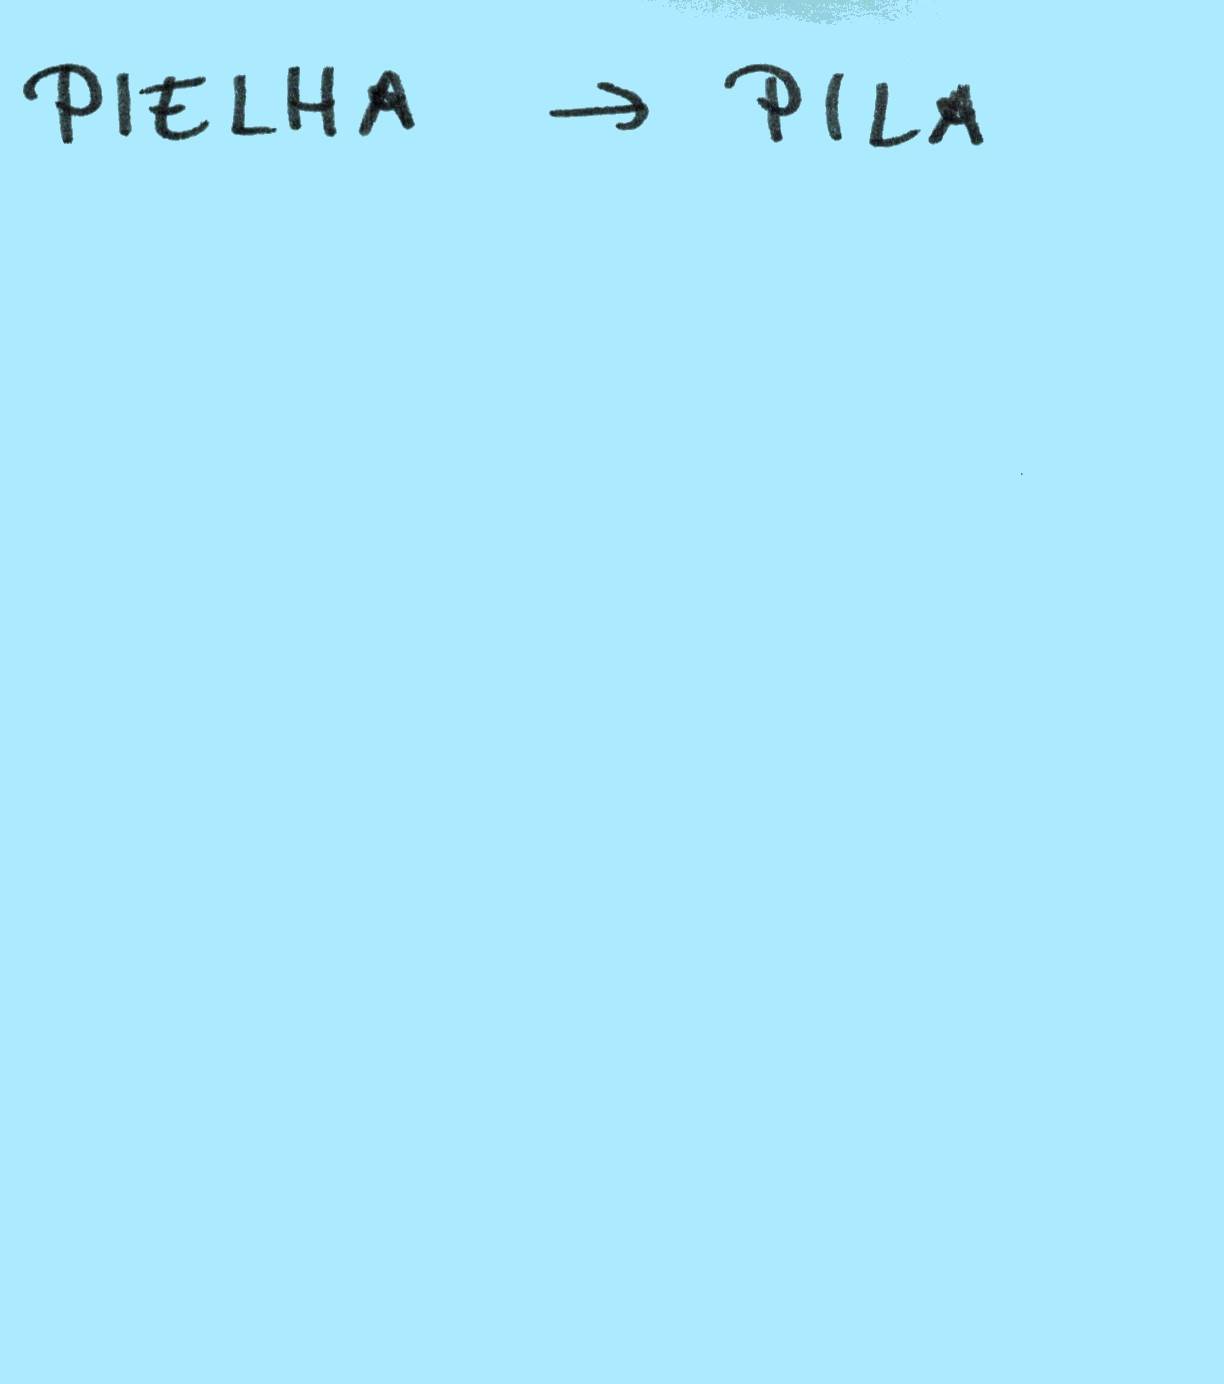 PIELHA → PILA